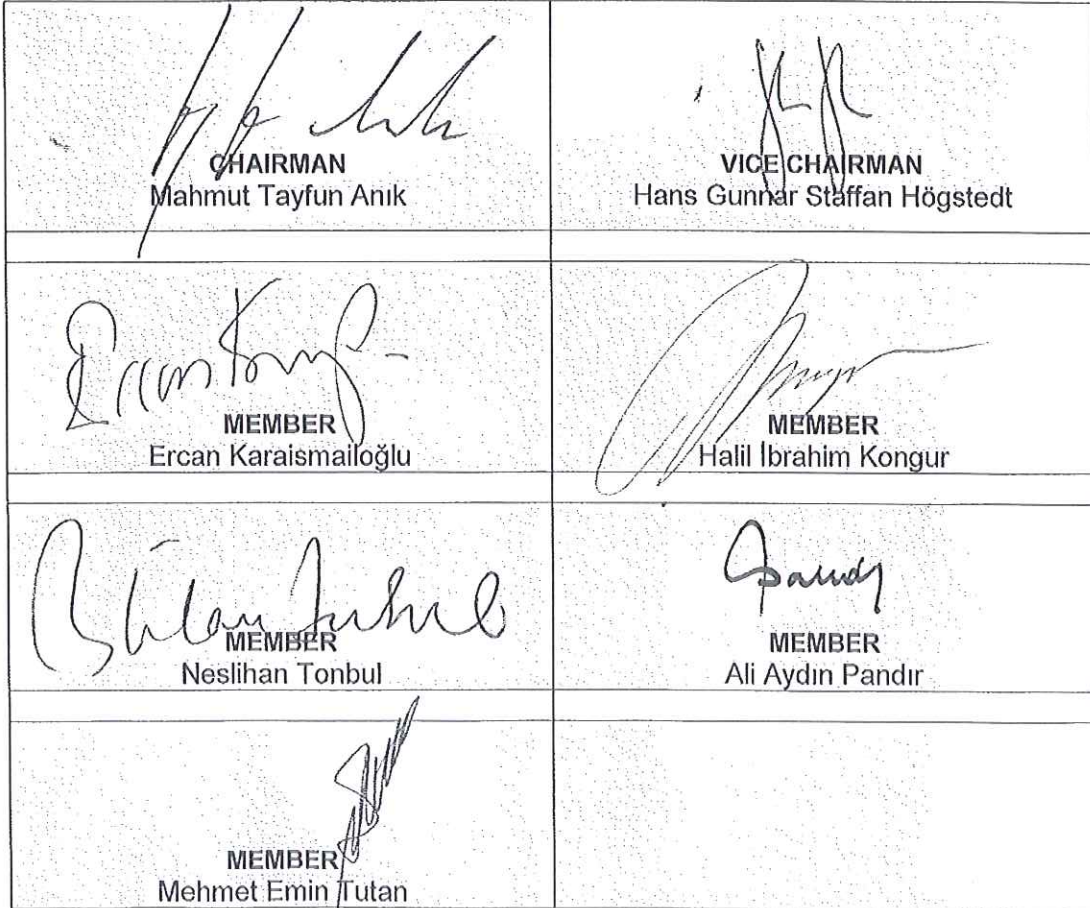 CHAIRMAN
Mahmut Tayfun Anık
VICE CHAIRMAN
Hans Gunnar Staffan Högstedt
MEMBER
Ercan Karaismailoğlu
MEMBER
Halil İbrahim Kongur
MEMBER
Neslihan Tonbul
MEMBER
Ali Aydın Pandır
MEMBER
Mehmet Emin Tutan